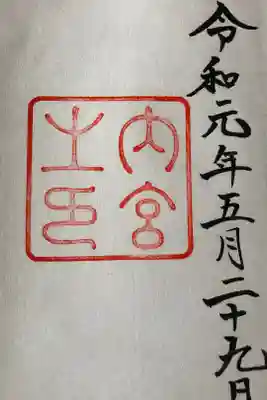 令和元年五月二十九日
内宮
之印